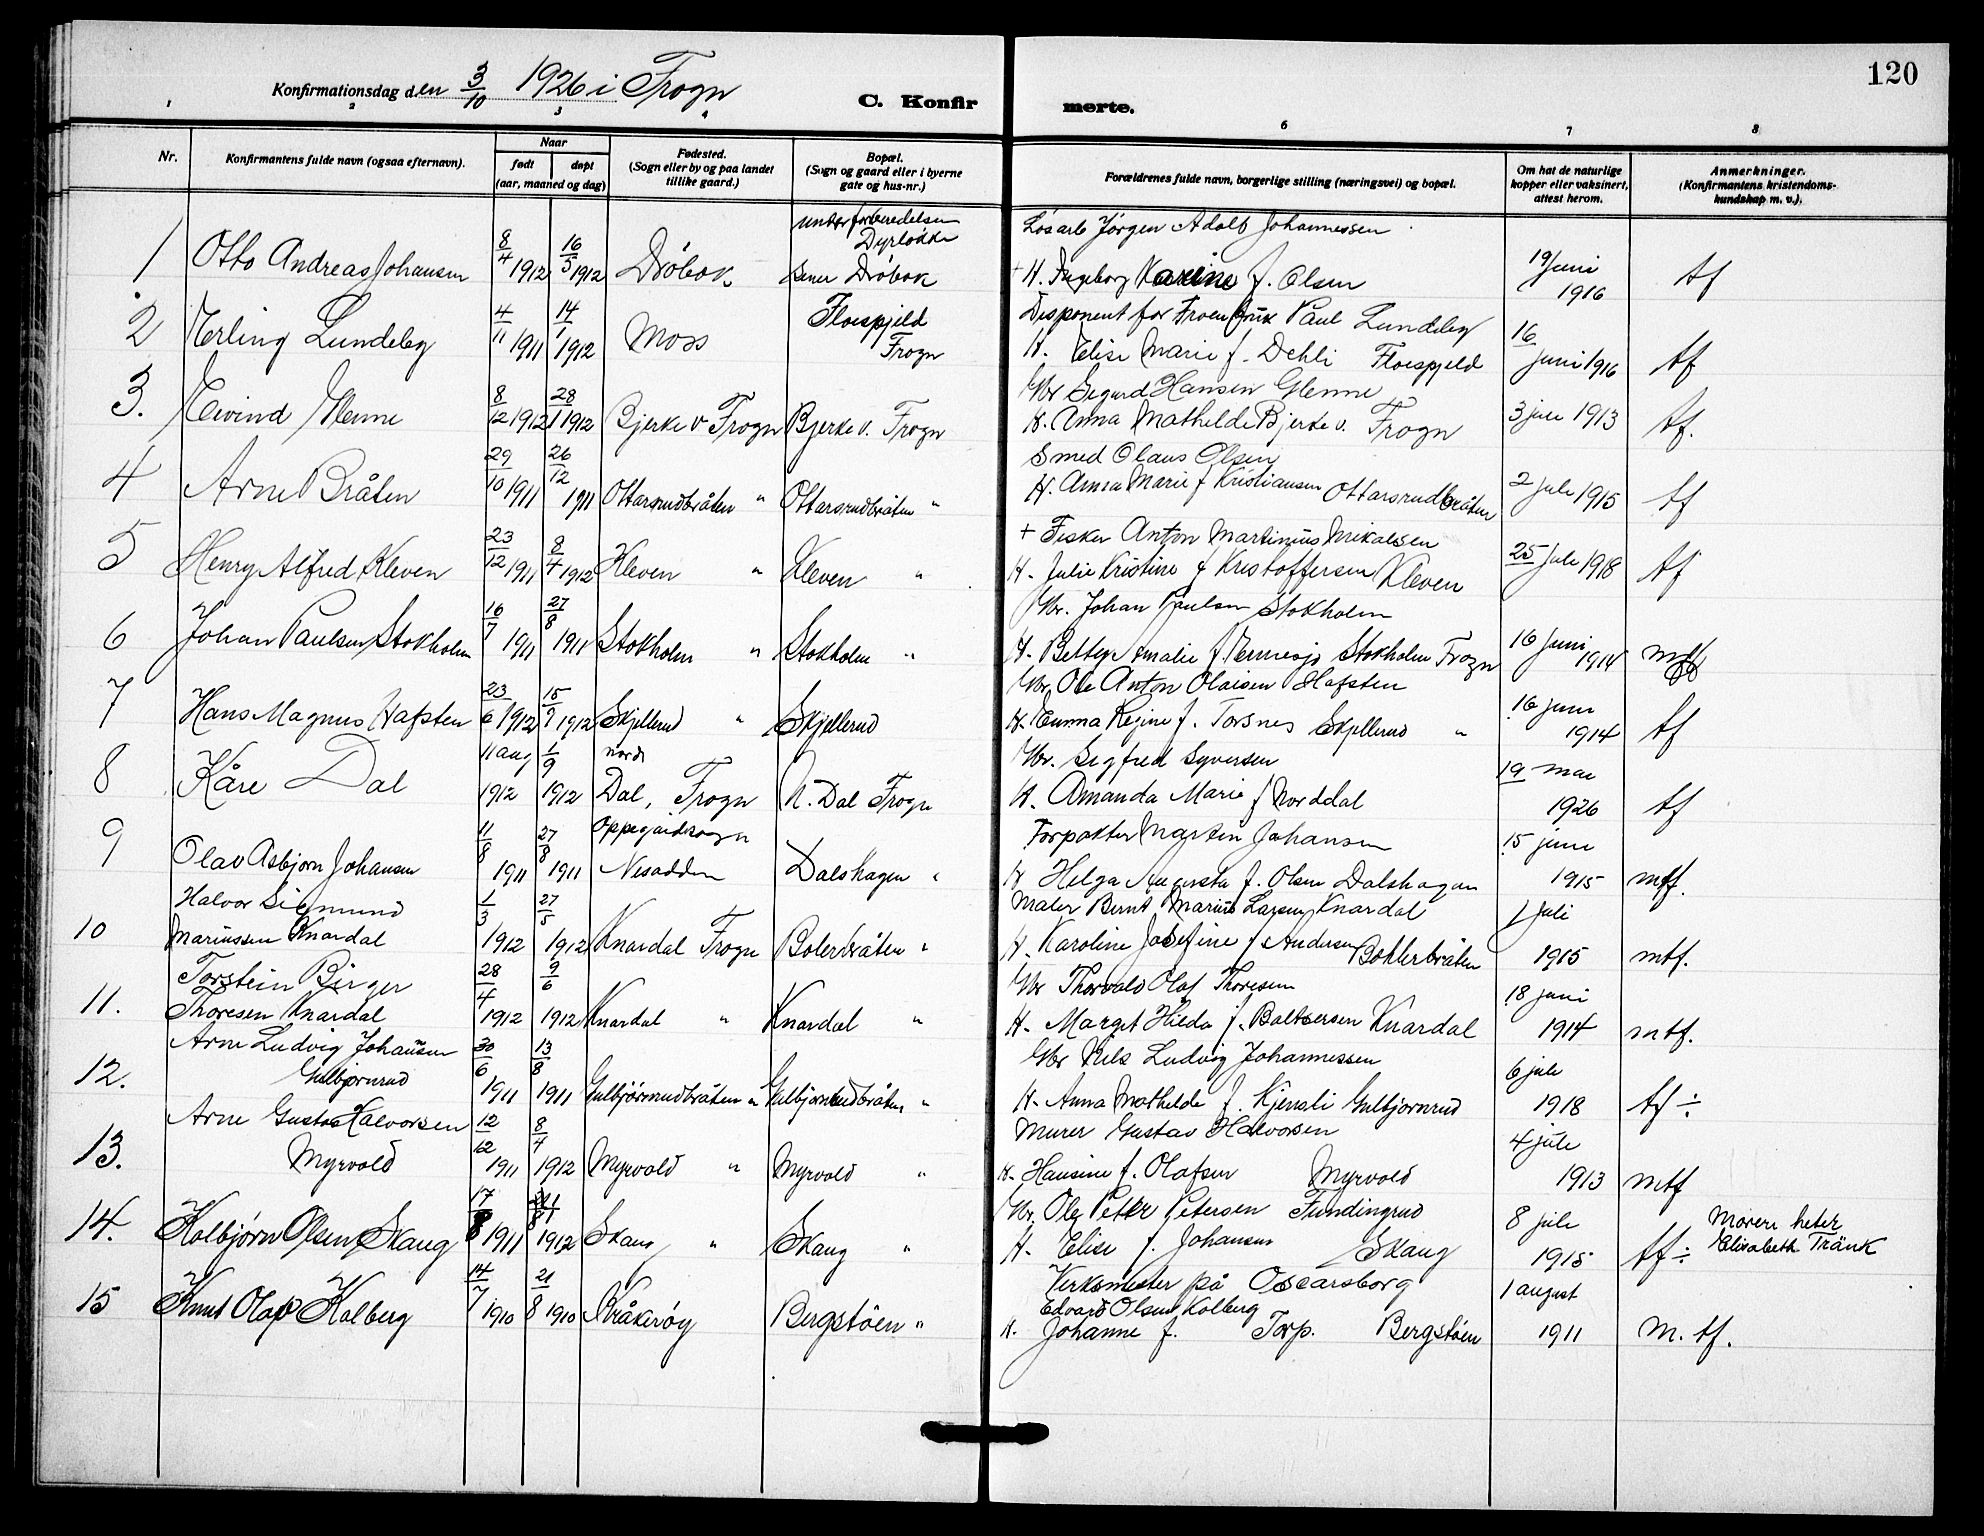 120
Konfirmationsdag den 3/10 1926 i Frogn
C. Konfir merte.
1 2 3 4 6 7 8
Nr.
Konfirmantens fulde navn (ogsaa efternavn).
Naar
født døpt
(aar, maaned og dag)
Fødested.
(Sogn eller by og paa landet
tillike gaard.)
Bopæl.
(Sogn og gaard eller i byerne
gate og hus-nr.)
Forældrenes fulde navn, borgerlige stilling (næringsvei) og bopæl.
Om hat de naturlige
kopper eller vaksinert,
attest herom.
Anmerkninger.
(Konfirmantens kristendoms-
kundskap m. v.).
under forberedelsen Løsarb Jørgen Adolf Johannessen
Dyrløkke
1 Otto Andreas Johansen 8/4 1912 16/5 1912 Drøbak senere Drøbak + H. Ingeborg Karine f. Olsen 19 juni 1916 tf
Floespjeld Disponent for Froen Bruk Paul Lundeby
2 Erling Lundeby 4/11 1911 14/1 1912 Moss Frogn H. Elise Marie f. Dehli Floespjeld 16 juni 1916 tf
Gbr Sigurd Hansen Glenne
3. Eivind Glenne 8/12 1912 28/1 1912 Bjerke v Frogn Bjerke v. Frogn H. Anna Mathilde Bjerke v. Frogn 3 juli 1913 tf.
Smed Olaus Olsen
4 Arne Bråten 29/10 1911 26/12 1911 Ottarsrudbråten " Ottarsrudbråten " H. Anna Marie f Kristiansen Ottarsrudbråten 2 juli 1915 tf
+ Fisker Anton Martinius Mikalsen
5 Henry Alfred Kleven 23/12 1911 8/4 1912 Kleven " Kleven " H. Julie Kristine f Kristoffersen Kleven 25 juli 1918 tf
Gbr. Johan Paulsen Stokholm
6 Johan Paulsen Stokholm 16/7 1911 27/8 1911 Stokholm " Stokholm " H. Betty Amalie f. Stokholm Frogn 16 juni 1914 mtf
Gbr. Ole Anton Olaisen Hafsten
7 Hans Magnus Hafsten 23/6 1912 15/9 1912 Skjellerud " Skjellerud H. Emma Regine f. Torsnes Skjellerud " 16 juni 1914 tf
nord Gbr. Sigfred Syversen
8 Kåre Dal 11 aug 1912 1/9 1912 Dal, Frogn N. Dal Frogn H. Amanda Marie f Norddal 19 mai 1926 tf
Oppegårdsogn Forpakter Martin Johansen
9 Olav Asbjørn Johansen 11/8 1911 27/8 1911 Nesodden Dalshagen " H Helga Augusta f. Olsen Dalshagen 15 juni 1915 mtf.
Halvor Sigmund Maler Bernt Marius Larsen Knardal
10 Mariussen Knardal 1/3 1912 27/5 1912 Knardal Frogn Bølerbråten " H. Karoline Josefine f. Andersen Bøhlerbråten 1 juli 1915 mtf.
Torstein Birger Gbr Thorvald Olaf Thoresen
11. Thoresen Knardal 28/4 1912 9/6 1912 Knardal " Knardal " H. Margit Hilda f. Baltsersen Knardal 18 juni 1914 mtf.
Arne Ludvig Johansen Gbr Nils Ludvig Johannessen
12. Gulbjørnrud 30/6 1911 13/8 1911 Gulbjørnrudbråten " Gulbjørnrudbråten " H. Anna Mathilde f. Kjensli Gulbjørnrud 6 juli 1918 tf ÷
Arne Gustav Halvorsen Murer Gustav Halvorsen
13. Myrvold 12/12 1911 8/4 1912 Myrvold " Myrvold " H. Hansine f. Olafsen Myrvold 4 juli 1913 mtf
Gbr. Ole Petter Petersen Fundingrud
14. Kolbjørn Olsen Skaug 17/8 1911 1912 Skaug " Skaug " H. Elise f. Johansen Skaug 8 juli 1915 tf ÷ Moren heter
Elisabeth Tränk
Verksmester på Oscarsborg
Edvard Olsen Kolberg
15 Knut Olaf Kolberg 14/7 1910 21/8 1910 Kråkerøy Bergstøen " H. Johanne f. Torp. Bergstøen 1 august 1911 M. tf.